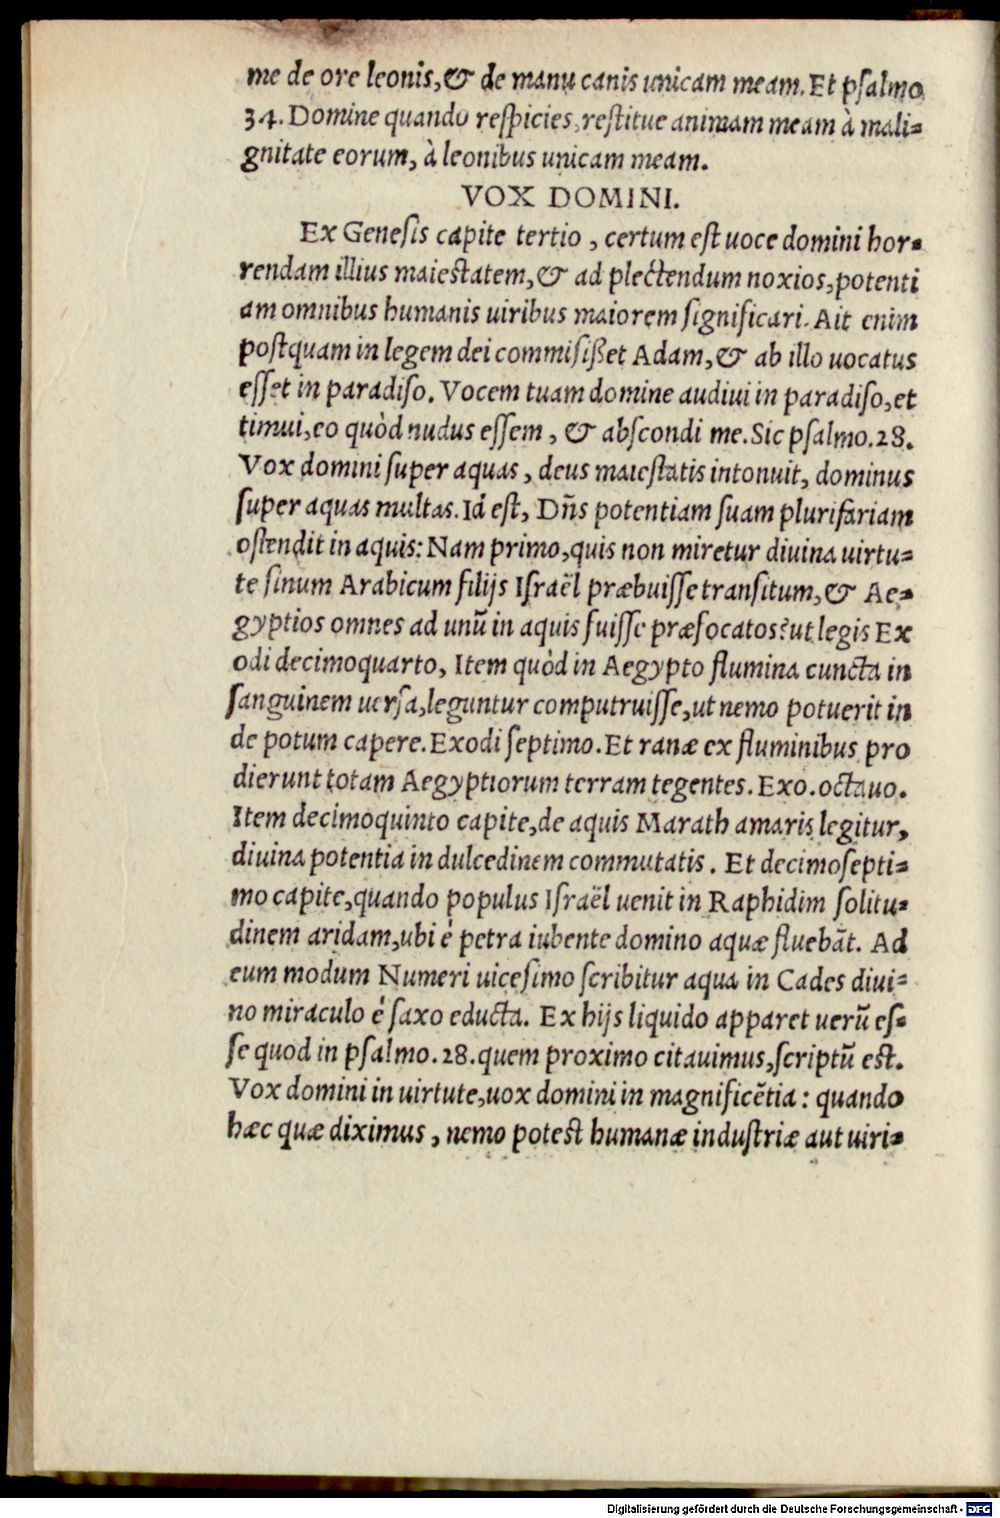 me de ore leonis, & de manu canis unicam meam. Et psalmo
34. Domine quando respicies, restitue animam meam à mali-
gnitate eorum, à leonibus unicam meam.
VOX DOMINI.
Ex Genesis capite tertio, certum est uoce domini hor-
rendam illius maiestatem, & ad plectendum noxios, potenti
am omnibus humanis uiribus maiorem significari. Ait enim
postquam in legem dei commisißet Adam, & ab illo uocatus
esset in paradiso. Vocem tuam domine audiui in paradiso, et
timui, eo quòd nudus essem, & abscondi me. Sic psalmo. 28.
Vox domini super aquas, deus maiestatis intonuit, dominus
super aquas multas. Id est, Dñs potentiam suam plurifariam
ostendit in aquis: Nam primo, quis non miretur diuina uirtu-
te sinum Arabicum filijs Israël præbuisse transitum, & Ae-
gyptios omnes ad unū in aquis fuisse præfocatos? ut legis Ex
odi decimoquarto, Item quòd in Aegypto flumina cuncta in
sanguinem uersa, leguntur computruisse, ut nemo potuerit in
de potum capere. Exodi septimo. Et ranæ ex fluminibus pro
dierunt totam Aegyptiorum terram tegentes. Exo. octauo.
Item decimoquinto capite, de aquis Marath amaris legitur,
diuina potentia in dulcedinem commutatis. Et decimosepti-
mo capite, quando populus Israël uenit in Raphidim solitu-
dinem aridam, ubi é petra iubente domino aquæ fluebāt. Ad
eum modum Numeri uicesimo scribitur aqua in Cades diui-
no miraculo é saxo educta. Ex hijs liquido apparet uerū es-
se quod in psalmo. 28. quem proximo citauimus, scriptū est.
Vox domini in uirtute, uox domini in magnificētia: quando
hæc quæ diximus, nemo potest humanæ industriæ aut uiri-
Digitalisierung gefördert durch die Deutsche Forschungsgemeinschaft - DFG